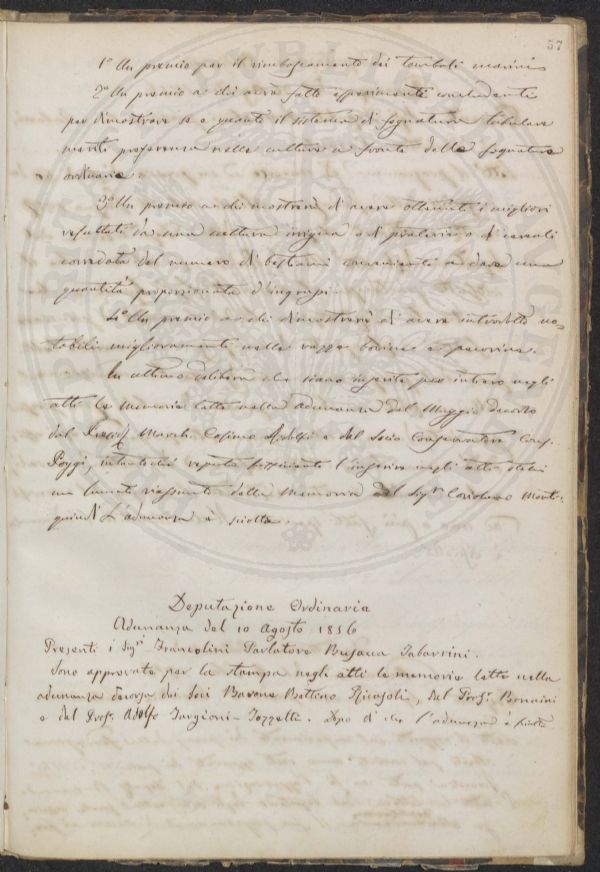 57
1º Un premio per il rimboscamento dei tomboli marini
2º Un premio a chi avrà fatto esperimenti concludenti
per dimostrare se e quanto il sistema di fognatura tubulare
meriti preferenza nelle culture a fronte della fognatura
ordinaria.
3º Un premio a chi mostrerà di avere ottenuti i migliori
resultati da una cultura irrigua o di prateria o di cereali
corredata del numero di bestiami conveniente a dare una
quantità proporzionata d'ingrassi.
4º Un premio a chi dimostrerà di avere introdotto no-
tabili miglioramenti nelle razze bovine e pecorine.
In ultimo delibera che siano inserite per intiero negli
atti le memorie lette nella adunanza del Maggio decorso
dal March. Cosimo Ridolfi e dal Socio Conservatore
Poggi, intantochè reputa sufficiente l'inserire negli atti stessi
un sunto della memoria del Sigr. Coriolano Monti
quindi L'adunanza è sciolta.
Deputazione Ordinaria
Adunanza del 10 Agosto 1856
Presenti i Sigri Francolini Parlatore Busacca Tabarrini.
Sono approvate per la stampa negli atti le memorie lette nella
adunanza decorsa dai Soci Barone Bettino Ricasoli, del Prof.
e del Prof. Adolfo Targioni-Tozzetti. Dopo di che l'adunanza è sciolta